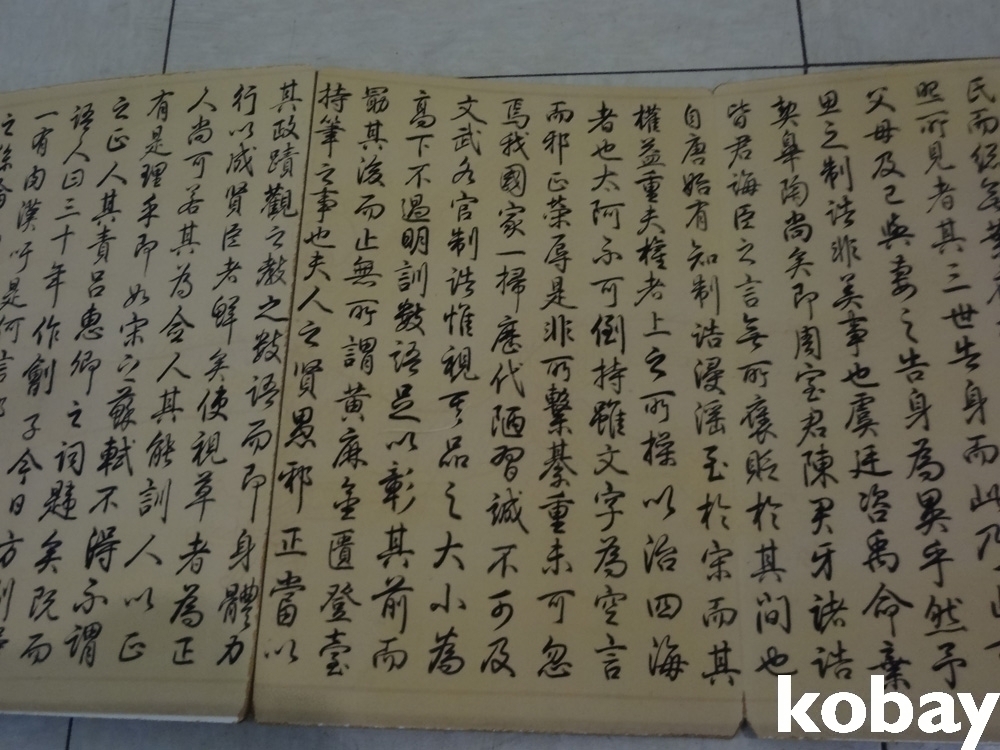 民而
照所見者其三世告身而此乃
父母及己與妻之告身為異乎然予
思之制誥非美事也虞廷咨禹命棄
契皋陶尚矣即周室君陳君牙諸誥
皆君誨臣之言無所褒貶於其間也
自唐始有知制誥浸淫至於宋而其
權益重夫權者上之所操以治四海
者也太阿不可倒持雖文字為空言
而邪正榮辱是非所繫綦重未可忽
焉我國家一掃歷代陋習誠不可及
文武各官制誥惟視其品之大小為
高下不過明訓數語足以彰其前而
勗其後而止無所謂黃麻金匱登臺
持筆之事也夫人之賢愚邪正當以
其政蹟觀之教之數語而即身體力
行以成賢臣者鮮矣使視草者為正
人尚可若其為僉人其能訓人以正
有是理乎即如宋之蘇軾不得不謂
之正人其責呂惠卿之詞韙矣既而
語人曰三十年作劊子今日方
一有肉漢吁是何言
kobay